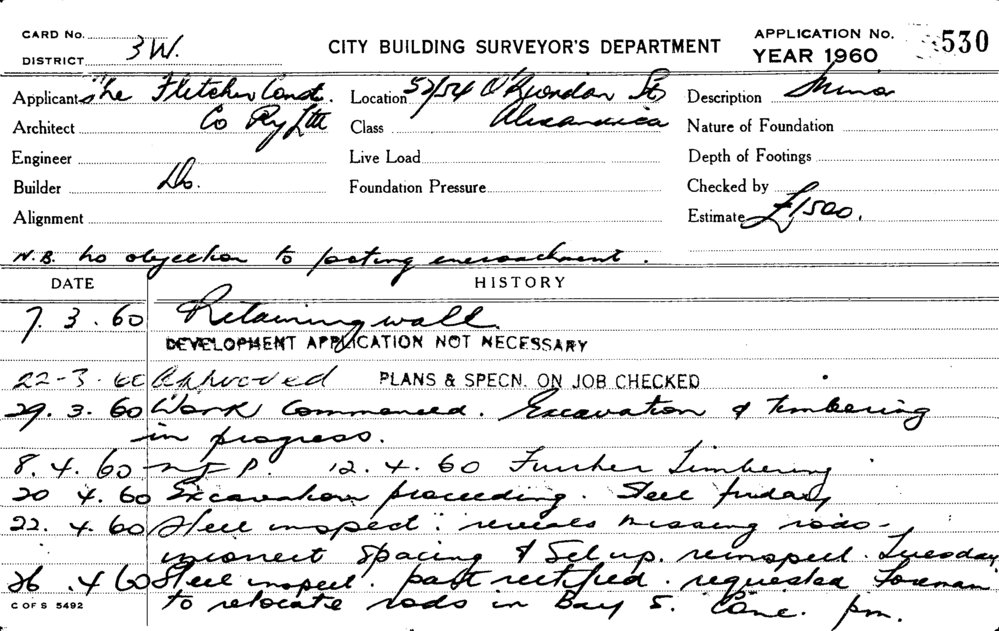 CARD No.
DISTRICT 3W.
CITY BUILDING SURVEYOR'S DEPARTMENT
APPLICATION No. 530
YEAR 1960
Applicant The Fletcher Const. Location 52/54 O'Riordan St Description Minor
Architect Co Pty Ltd Class Alexandria Nature of Foundation
Engineer Live Load Depth of Footings
Builder Do. Foundation Pressure Checked by
Alignment Estimate £1500.
N.B. no objection to footing encroachment.
DATE HISTORY
7.3.60 Retaining wall.
DEVELOPMENT APPLICATION NOT NECESSARY
22-3.60 Approved PLANS & SPECN. ON JOB CHECKED
29.3.60 Work Commenced. Excavation & Timbering
in progress.
8.4.60 12.4.60 Further Timbering
20 4.60 Excavation proceeding. Steel friday
22.4.60 Steel inspect: reveals missing rods-
incorrect spacing & set up. reinspect. Tuesday
26.4 60 Steel inspect. part rectified. requested Foreman
C OF S 5492 to relocate rods in Bay 5. Conc. pm.